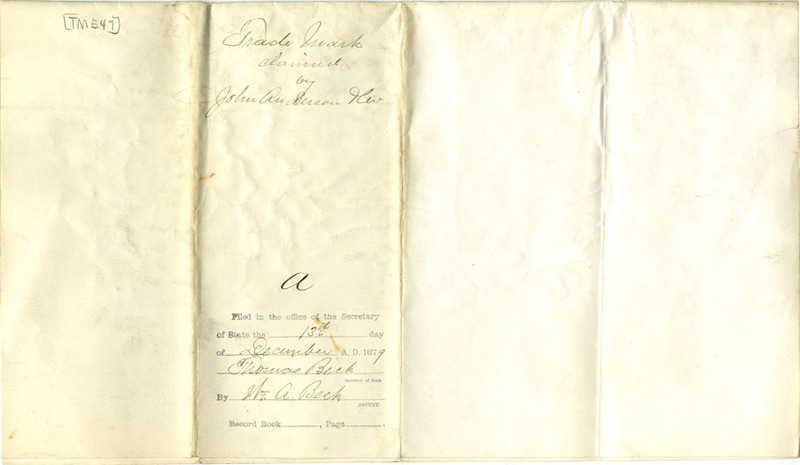 [TM547]
Trade Mark
claimed
by
John Anderson
a
Filed in the office of the Secretary
of State the 13th day
of December A. D. 1879
Thomas Beck
Secretary of State.
By Wm A. Beck
DEPUTY.
Record Book ............, Page ............